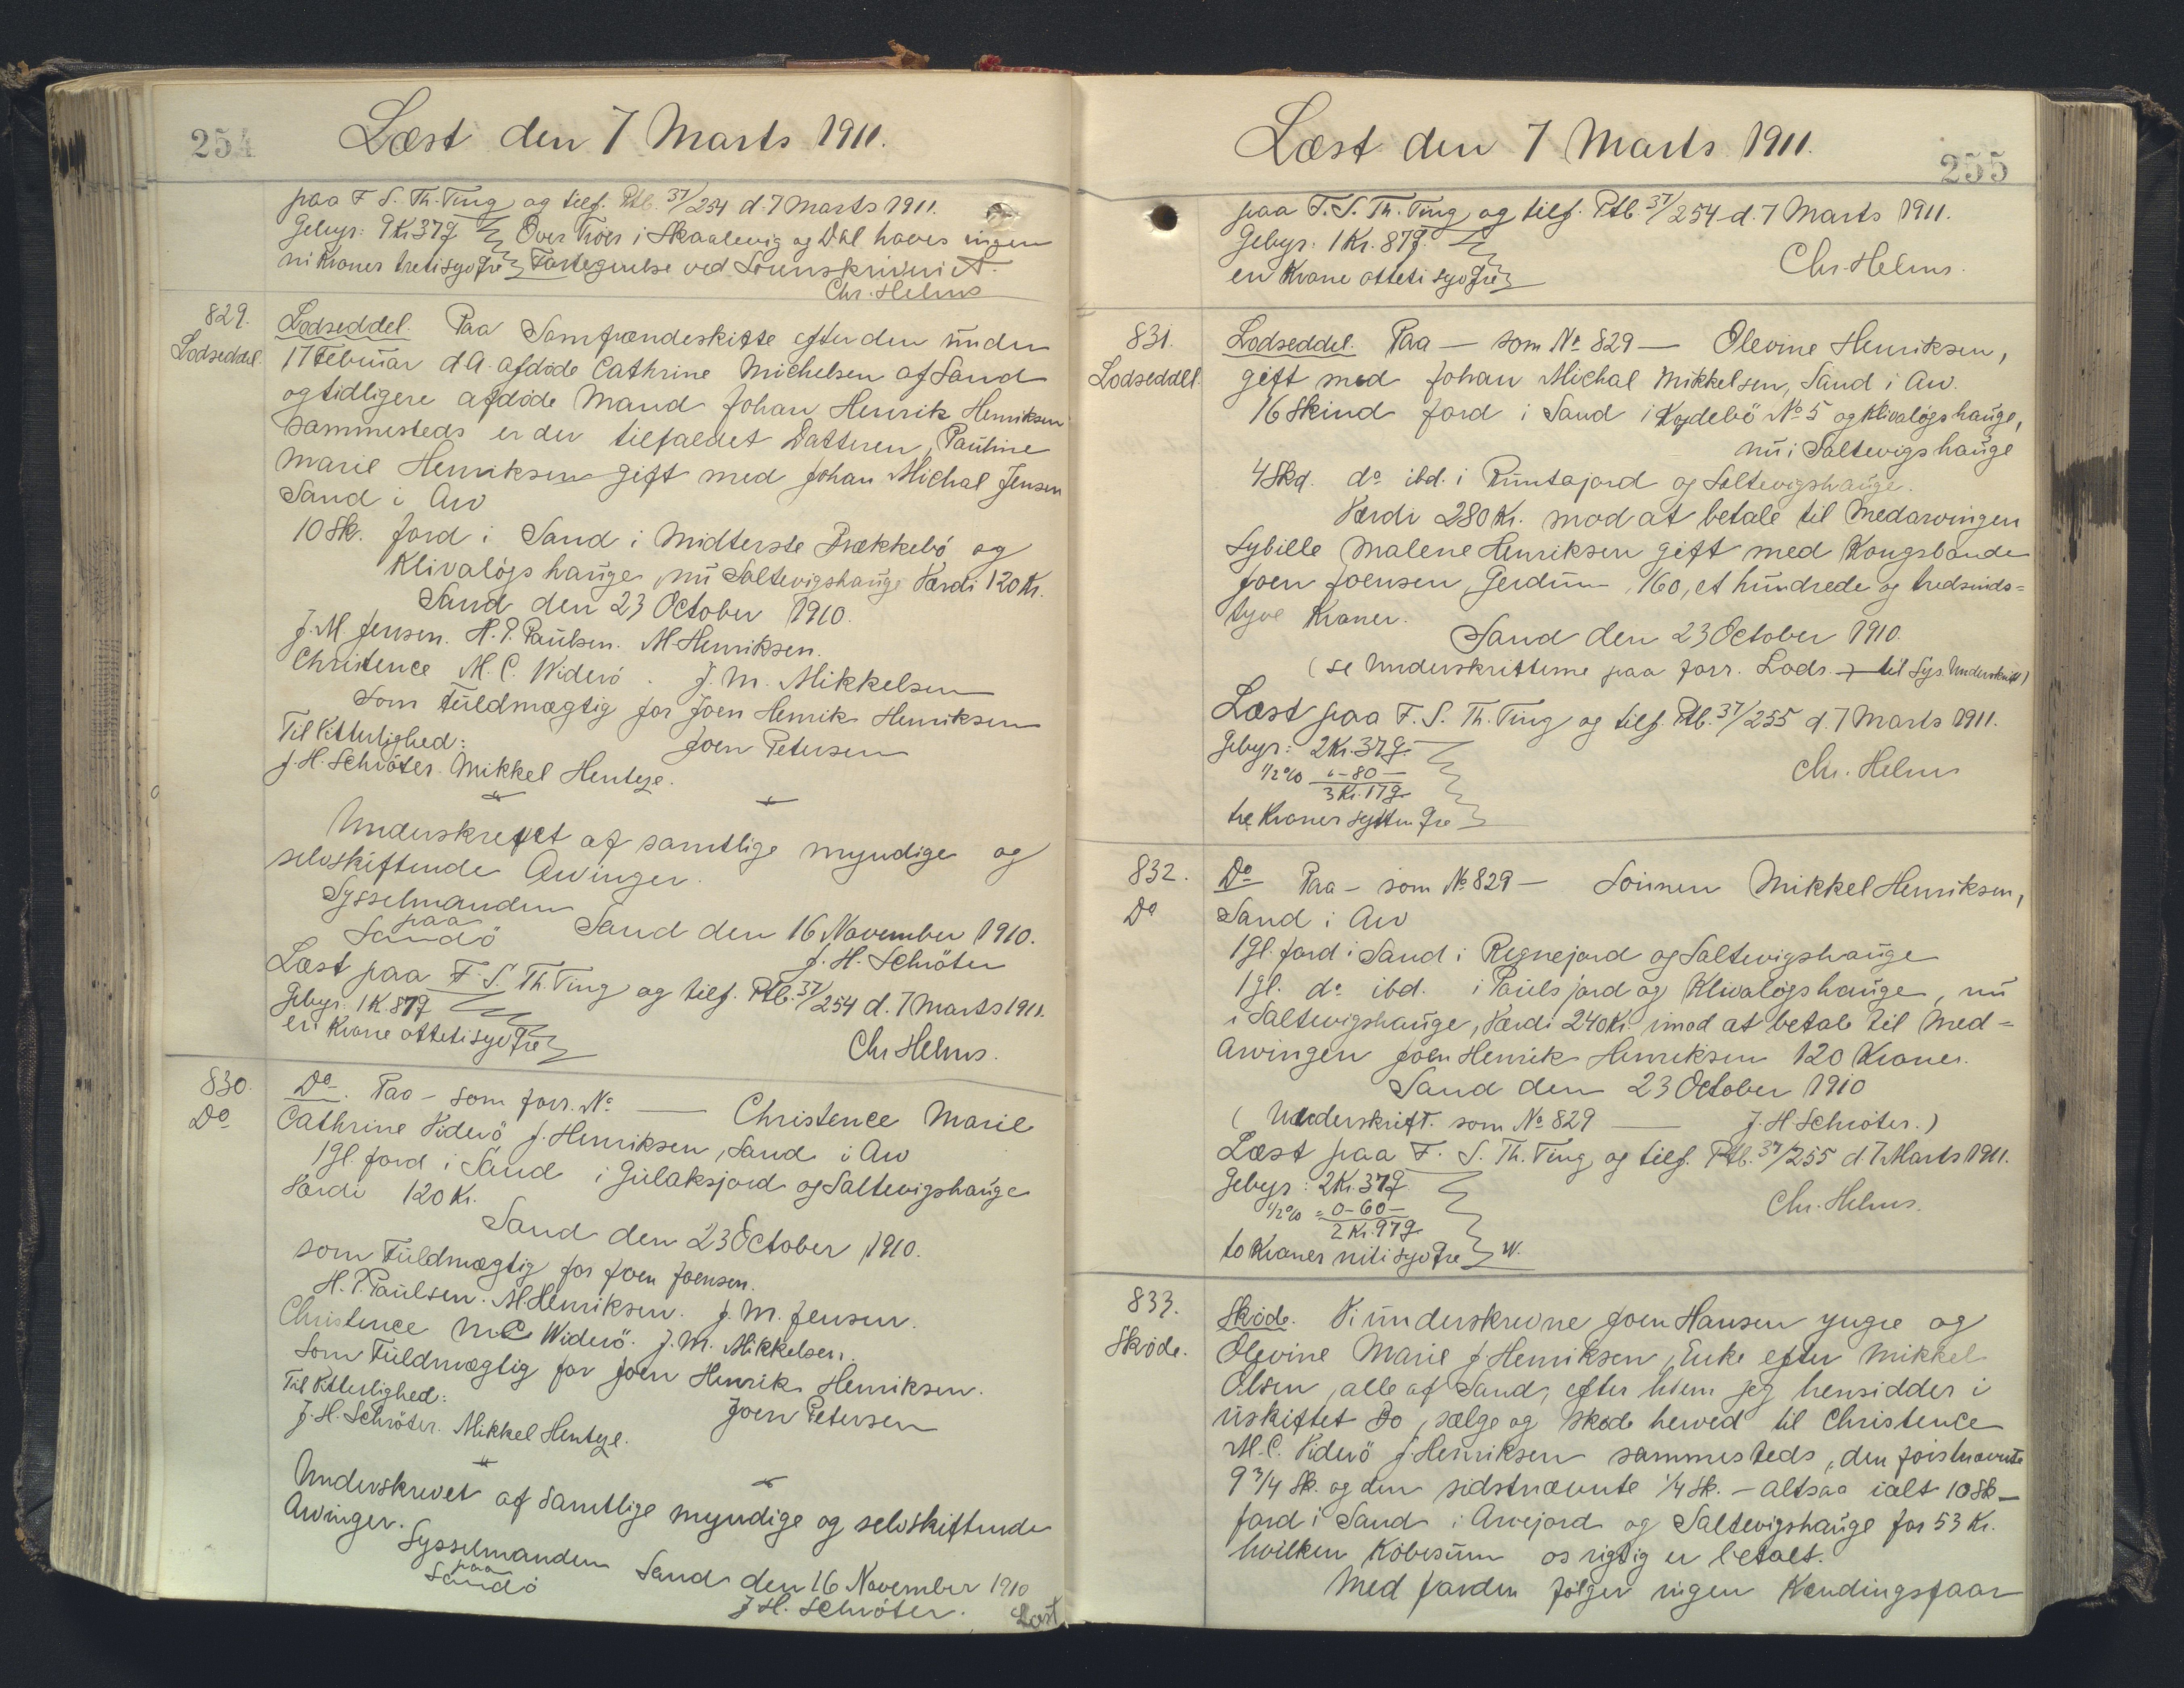 254
Læst den 7 Marts 1911.
paa F. S. Th. Ting og tilf. Ptb. 37/254 d. 7 Marts 1911.
Gebyr: 9 Kr 37 Ø Over Troer i Skaalevig og Dal haves ingen
ni Kroner tretisyv Øre Fortegnelse ved Sorenskriveriet.
Chr. Helms
829.
Lodseddel.
Lodseddel. Paa Samfrændeskifte efter den under
17 Februar d A. afdöde Cathrine Michelsen af Sand
og tidligere afdöde Mand Johan Henrik Henriksen
sammesteds er der tilfaldet Datteren, Pauline
Marie Henriksen gift med Johan Michal Jensen
Sand i Arv
10 Sk. Jord i Sand i Midterste Prækkebö og
Klivaløgshauge, nu Saltevigshauge Værdi 120 Kr.
Sand den 23 October 1910.
J. M. Jensen. H. P. Paulsen. M. Henriksen.
Christence M. C. Viderö. J. M. Mikkelsen
Som Fuldmægtig for Joen Henrik Henriksen
Til Vitterlighed: Joen Petersen
J. H. Schröter. Mikkel Hentze.
Underskrevet af samtlige myndige og
selvskiftende Arvinger.
Sysselmanden
paa
Sandö Sand den 16 November 1910.
J. H. Schröter
Læst paa F. S. Th. Ting og tilf. Ptb. 37/254 d. 7 Marts 1911.
Gebyr. 1 K. 87 Ø
en Krone ottetisyv Øre Chr Helms.
830.
Do
Do. Paa - som forr. No — Christence Marie
Cathrine Viderö f. Henriksen, Sand i Arv
1 Gl. Jord i Sand i Gulaksjord og Saltevigshauge
Værdi 120 Kr.
Sand den 23 October 1910.
som Fuldmægtig for Joen Joensen.
H. P. Paulsen. M Henriksen. J. M. Jensen.
Christence M C Viderö. J. M. Mikkelsen.
Som Fuldmægtig for Joen Henrik Henriksen.
Til Vitterlighed: Joen Petersen
J. H. Schröter. Mikkel Hentze.
Underskrevet af Samtlige myndige og selvskiftende
Arvinger.
Sysselmanden
paa
Sandö Sand den 16 November 1910
J. H. Schröter. Læst
255
Læst den 7 Marts 1911.
paa F. S. Th. Ting og tilf. Ptb. 37/254 d. 7 Marts 1911.
Gebyr. 1 Kr. 87 Ø
en Krone ottetisyv Øre Chr. Helms.
831.
Lodseddel.
Lodseddel. Paa — som No 829 — Olevine Henriksen,
gift med Johan Michal Mikkelsen, Sand i Arv.
16 Skind Jord i Sand i No 5 og Klivaløgshauge,
nu i Saltevigshauge
4 Skd. do ibd. i Runtajord og Saltevigshauge.
Værdi 280 Kr. mod at betale til Medarvingen
Sybille Malene Henriksen gift med Kongsbonde
Joen Joensen, Gerdum, 160, et hundrede og tredsinds=
tyve Kroner.
Sand den 23 October 1910.
(se Underskrifterne paa forr. Lods. til Sys. Underskrift)
Læst paa F. S. Th. Ting og tilf. Ptb. 37/255 d. 7 Marts 1911.
Gebyr: 2 Kr. 37 Ø.
1/2 % " - 80 —
3 Kr. 17 Ø
tre Kroner sytten Øre Chr. Helms
832.
Do
Do Paa - som No 829 — Sönnen Mikkel Henriksen,
Sand i Arv
1 Gl. Jord i Sand i Regnejord og Saltevigshauge
1 Gl. do ibd. i Paulsjord og Klivaløgshauge, nu
i Saltevigshauge, Værdi 240 Kr. imod at betale til Med=
arvingen Joen Henrik Henriksen 120 Kroner.
Sand den 23 October 1910
(Underskrift. som No 829 — J. H Schröter.)
Læst paa F. S. Th. Ting og tilf. Ptb. 37/255 d. 7 Marts 1911.
Gebyr: 2 Kr. 37 Ø
1/2 % = 0 - 60 —
2 Kr. 97 Ø
to Kroner nitisyv Øre Chr. Helms.
833.
Sköde.
Sköde. Vi underskrevne Joen Hansen yngre og
Olevine Marie f. Henriksen, Enke efter Mikkel
Olsen, alle af Sand, efter hvem jeg hensidder i
uskiftet Bo, sælge og sköde herved til Christence
M. C. Viderö f. Henriksen sammesteds, den förstnævnte
9 3/4 Sk. og den sidstnævnte 1/4 Sk. - altsaa ialt 10 Sk —
Jord i Sand i Arvejord og Saltevigshauge for 53 Kr.
hvilken Köbesum os rigtig er betalt.
Med Jorden følger ingen Kendingsfaar